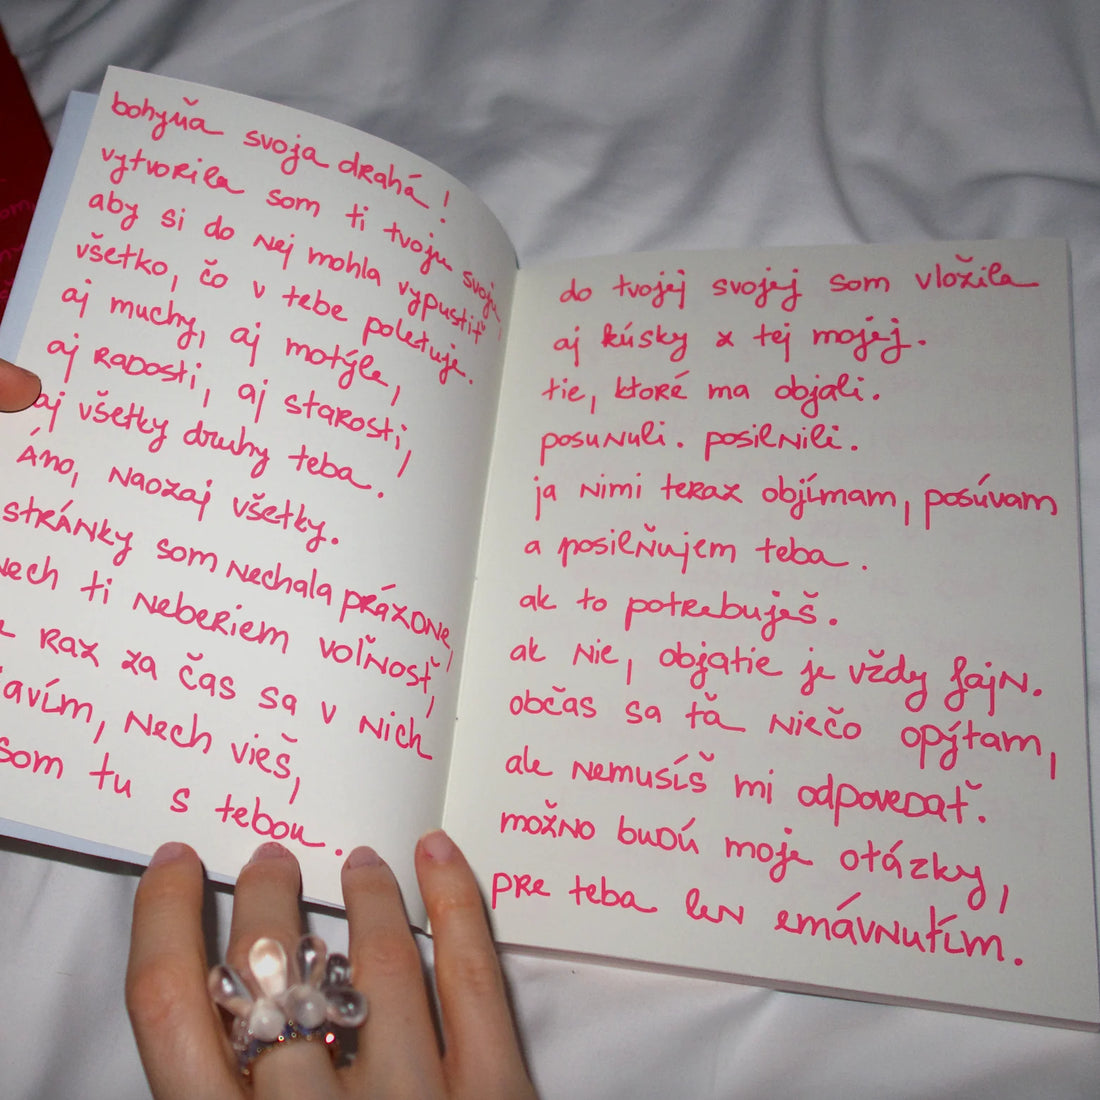 bohyňa svoja drahá!
vytvorila som ti tvoju svoju,
aby si do nej mohla vypustiť
všetko, čo v tebe poletuje.
aj muchy, aj motýle,
aj radosti, aj starosti,
aj všetky druhy teba.
áno, naozaj všetky.
stránky som nechala prázdne,
nech ti neberiem voľnosť,
raz za čas sa v nich
nech vieš,
som tu s tebou.
do tvojej svojej som vložila
aj kúsky z tej mojej.
tie, ktoré ma objali.
posunuli. posilnili.
ja nimi teraz objímam, posúvam
a posilňujem teba.
ak to potrebuješ.
ak nie, objatie je vždy fajn.
občas sa ťa niečo opýtam,
ale nemusíš mi odpovedať.
možno budú moje otázky,
pre teba len zmávnutím.